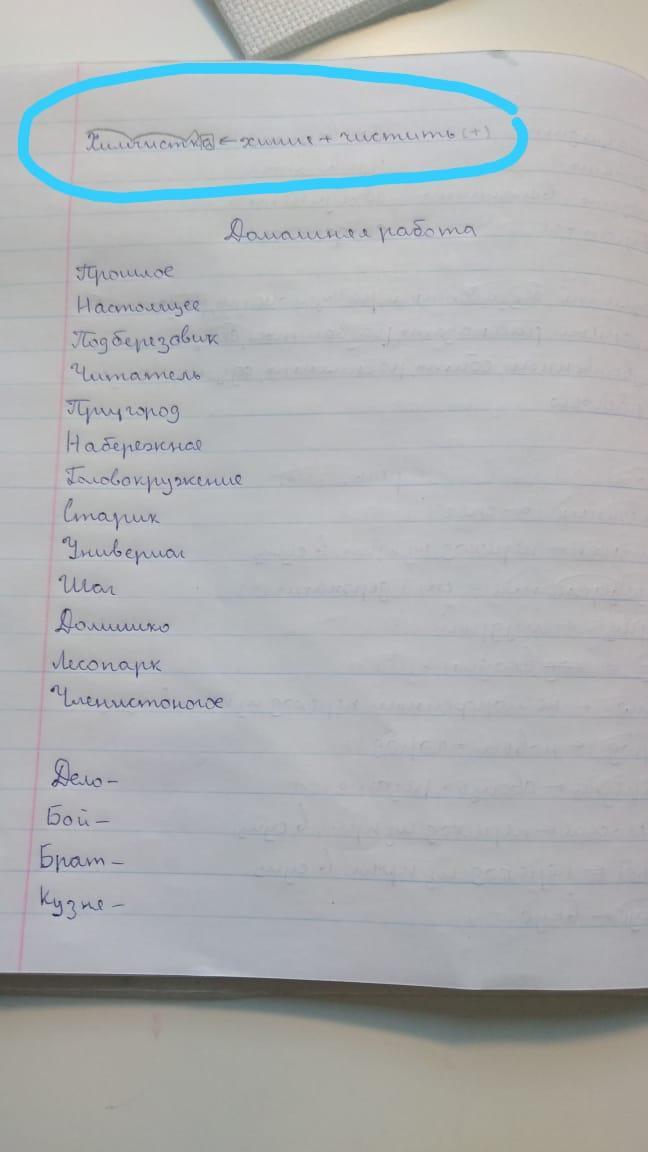 Химчистка ← химия + чистить (+)
Домашняя работа
Прошлое
Настоящее
Подберезовик
Читатель
Пригород
Набережная
Головокружение
Старик
Универмаг
Шаг
Домишко
Лесопарк
Членистоногое
Дело -
Бой -
Брат -
Кузне -